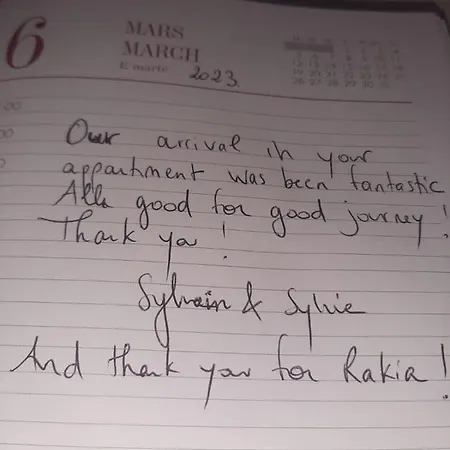 6
MARS
MARCH
E martë 2023.
Our arrival in your
appartment was been fantastic
All good for good journey!
Thank ya!
Sylvain & Sylvie
And thank you for Rakia!